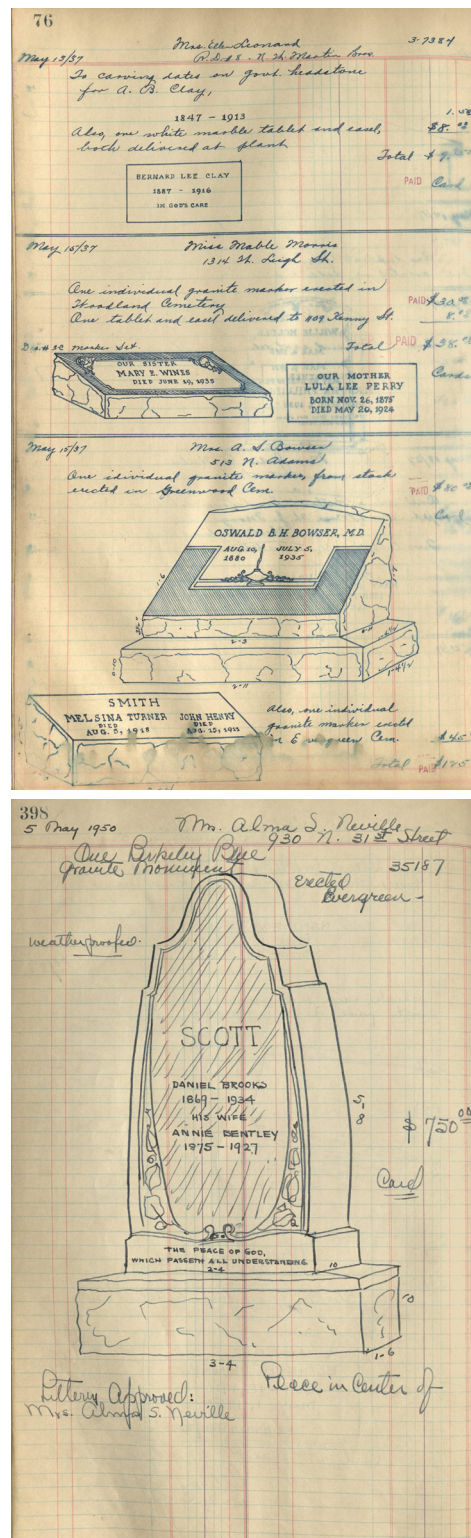 76
May 13/37
Mrs. Ellen Leonard
3-7384
R.D. #8 - N. H. Martin Bros.
To carving dates on govt. headstone
for A. B. Clay,
1847 - 1913
1.50
Also, one white marble tablet and easel,
$8.00
both delivered at plant
Total $9.
PAID Card
BERNARD LEE CLAY
1887 - 1916
IN GOD'S CARE
May 15/37
Miss Mable Morris
1314 W. Leigh St.
One individual granite marker erected in
Woodland Cemetery
PAID $30.00
One tablet and easel delivered to 809 Kenny St.
8.00
Total PAID $38.00
marker Set.
Cards
OUR SISTER
MARY E. WINES
DIED JUNE 19, 1935
OUR MOTHER
LULA LEE PERRY
BORN NOV. 26, 1875
DIED MAY 20, 1924
May 15/37
Mrs. A. S. Bowser
513 N. Adams
One idividual granite marker, from stock
erected in Greenwood Cem.
PAID $80.00
Card
OSWALD B. H. BOWSER, M.D.
AUG. 10, JULY 5,
1880 1935
1-6
2-3
2-11
1-4½
SMITH
MELSINA TURNER JOHN HENRY
DIED DIED
AUG. 5, 1918 AUG. 15, 1911
Also, one individual
granite marker erected
in Evergreen Cem.
$45
Total PAID $125
398
5 May 1950
Mrs. Alma S. Neville
930 N. 31st Street
One Berkeley Blue
Granite Monument
35187
Erected
Evergreen -
weatherproofed.
SCOTT
DANIEL BROOKS
1869 - 1934
HIS WIFE
ANNIE BENTLEY
1875 - 1927
5-8
$750.00
Card
THE PEACE OF GOD,
WHICH PASSETH ALL UNDERSTANDING
2-4
10
3-4
1-6
Place in Center of
Lettering Approved:
Mrs. Alma S. Neville